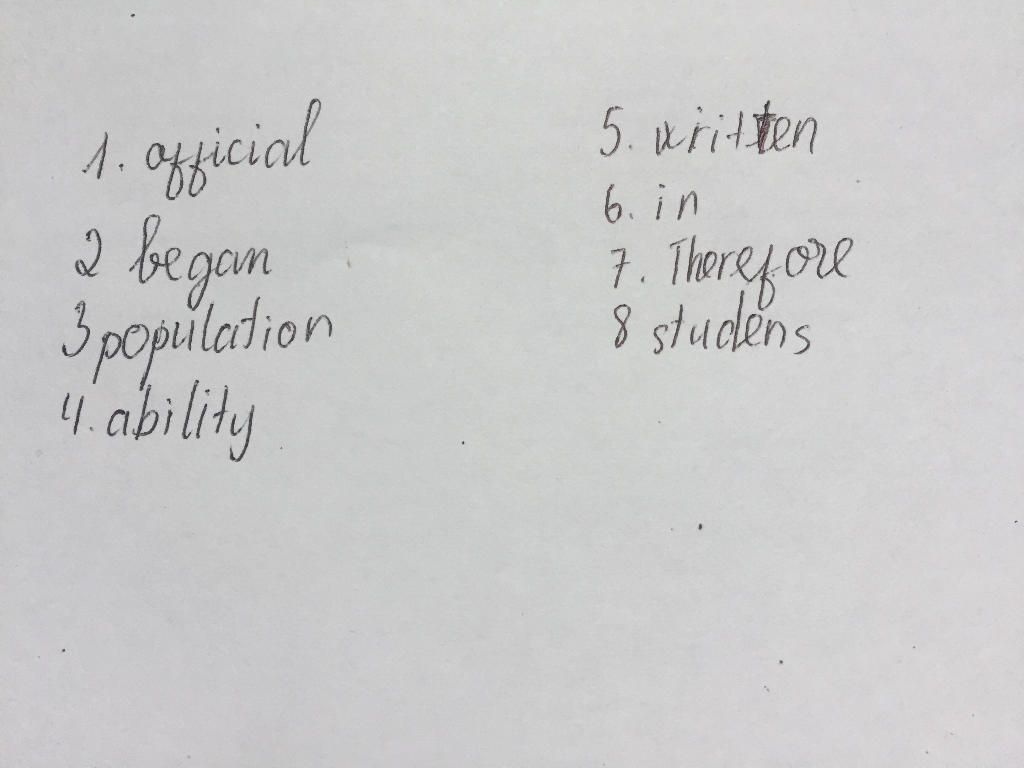 1. official
2 began
3 population
4. ability
5. written
6. in
7. Therefore
8 studens